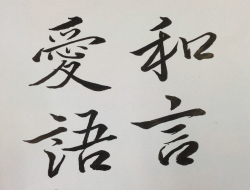 和言
愛語